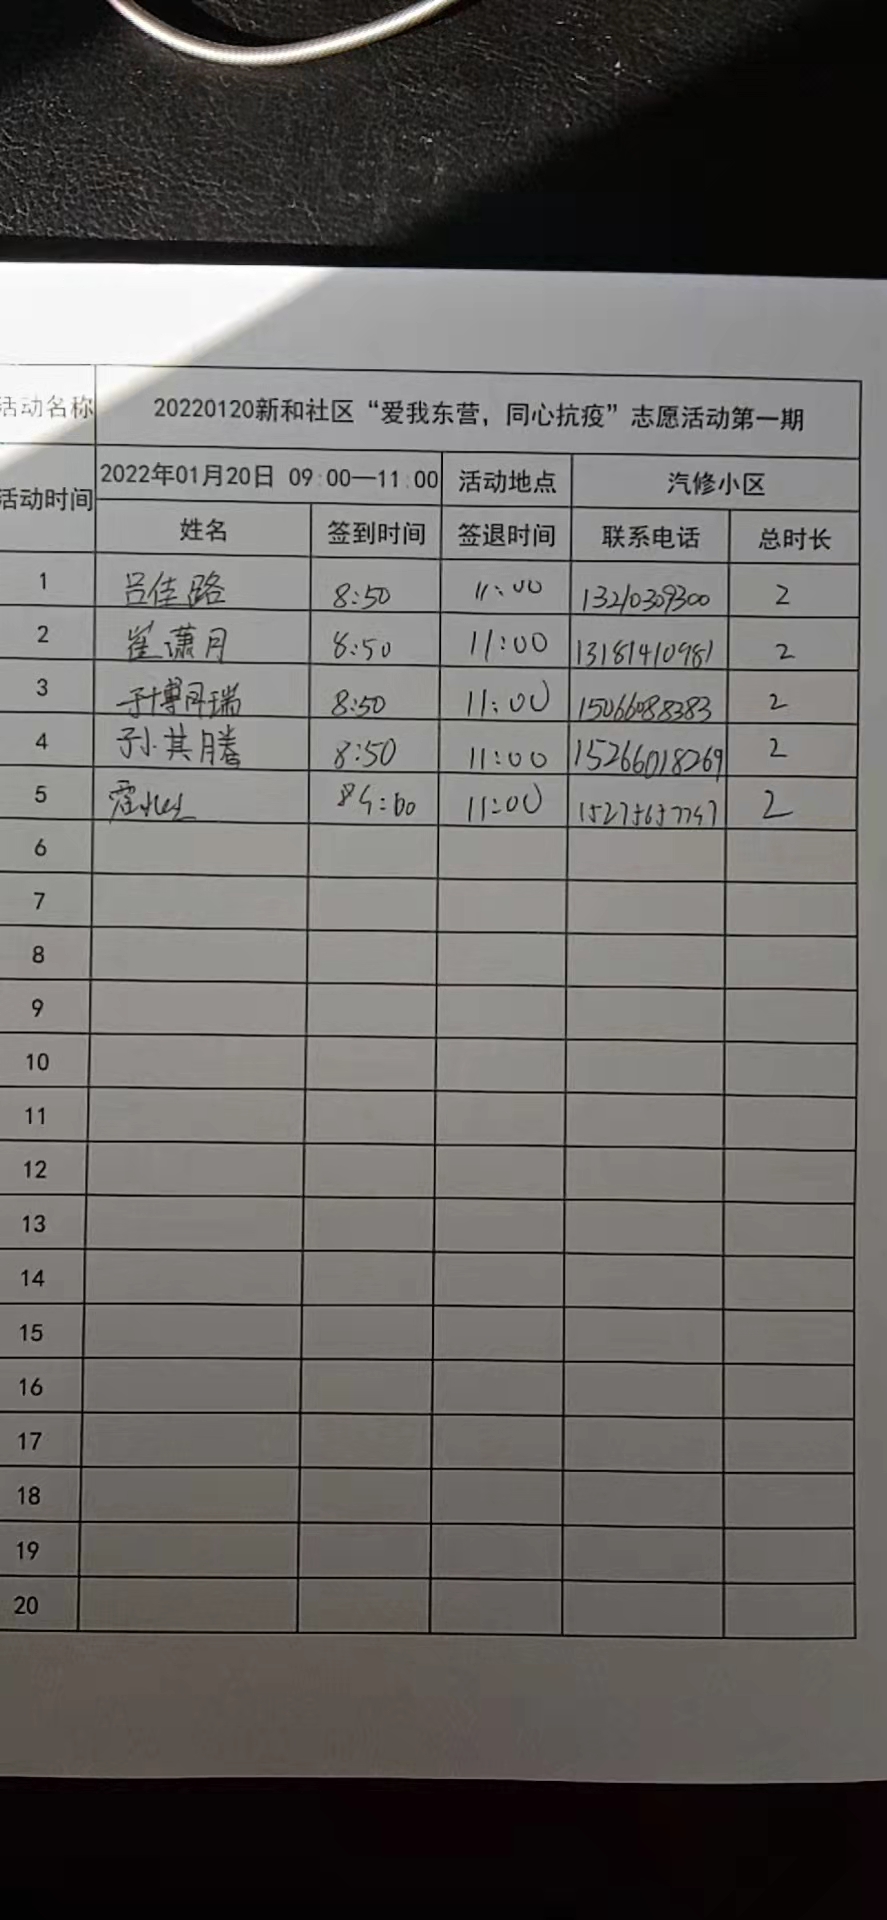 活动名称 20220120新和社区“爱我东营，同心抗疫”志愿活动第一期
活动时间 2022年01月20日 09:00—11:00 活动地点 汽修小区
姓名 签到时间 签退时间 联系电话 总时长
1 吕佳璐 8:50 11:00 13210309300 2
2 崔潇月 8:50 11:00 13181410981 2
3 8:50 11:00 15066088383 2
4 孙其腾 8:50 11:00 15266018269 2
5 11:00 2
6
7
8
9
10
11
12
13
14
15
16
17
18
19
20